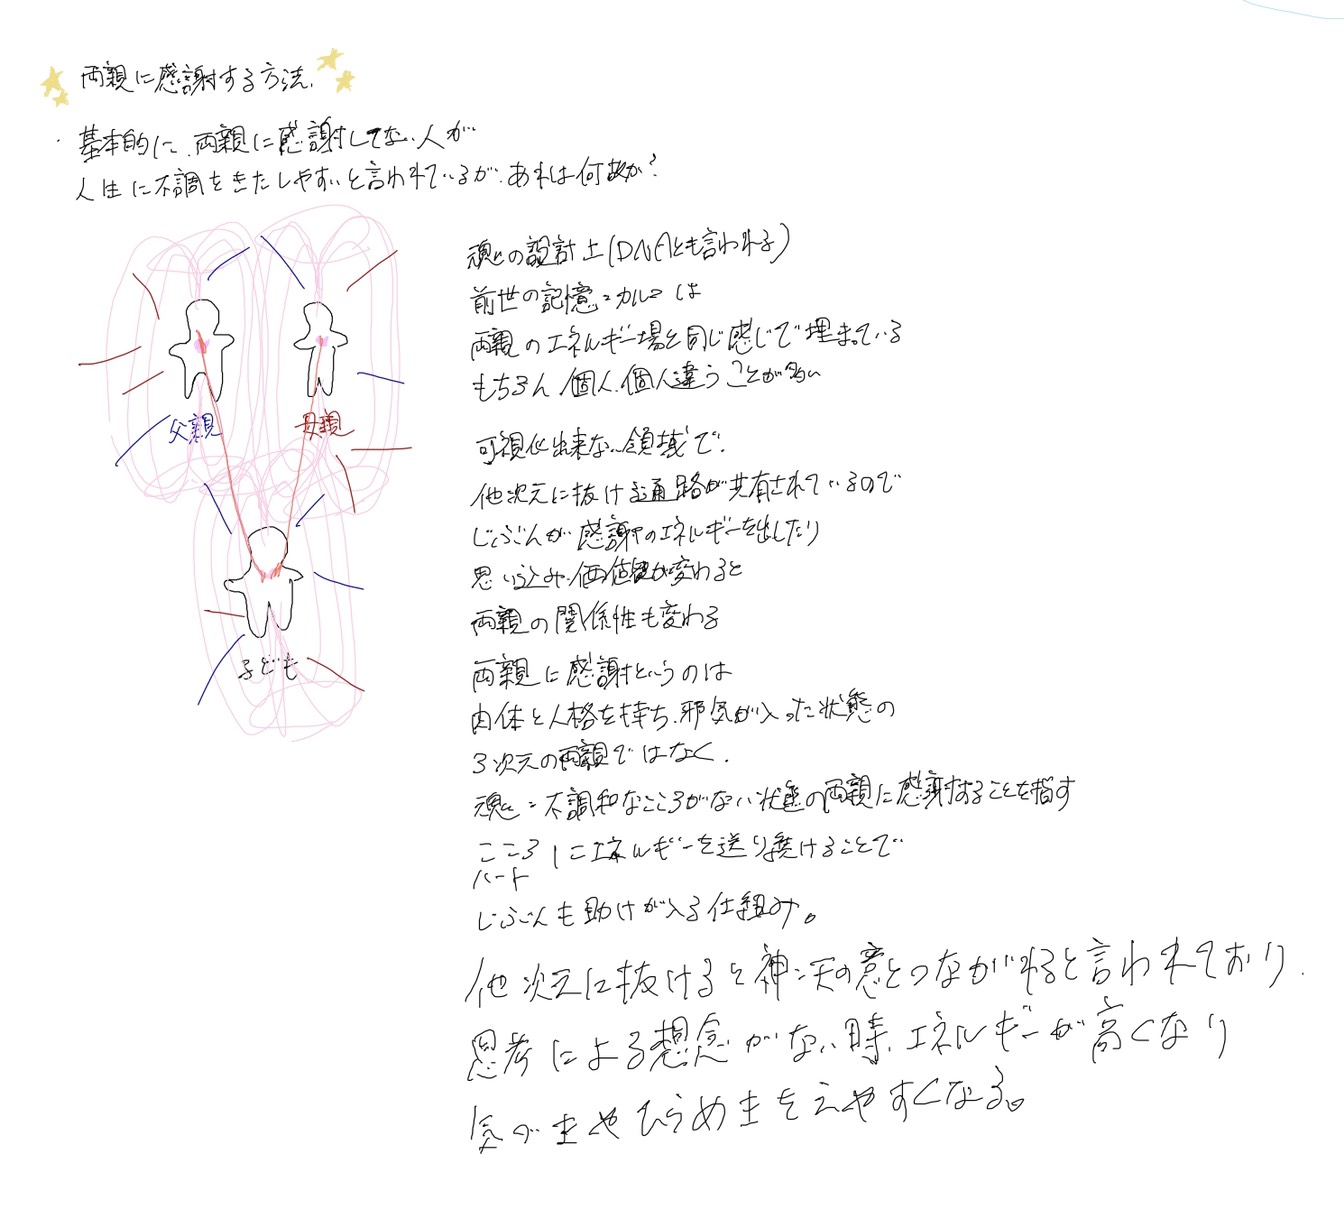 両親に感謝する方法.
・基本的に、両親に感謝してない人が
人生に不調をきたしやすいと言われているが、あれは何故か?
魂の設計上(DNAとも言われる)
前世の記憶=カルマは
両親のエネルギー場と同じ感じで埋まっている
もちろん、個人、個人違うことが多い
父親
母親
子ども
可視化出来ない領域で、
他次元に抜ける通路が共有されているので
じぶんが感謝のエネルギーを出したり
思い込み・価値観が変わると
両親の関係性も変わる
両親に感謝というのは
肉体と人格を持ち、邪気が入った状態の
3次元の両親ではなく、
魂=不調和なこころがない状態の両親に感謝することを指す
こころにエネルギーを送り続けることで
ハート
じぶんも助けが入る仕組み。
他次元に抜けると神=天の意とつながれると言われており、
思考による想念がない時、エネルギーが高くなり
気づきやひらめきをえやすくなる。